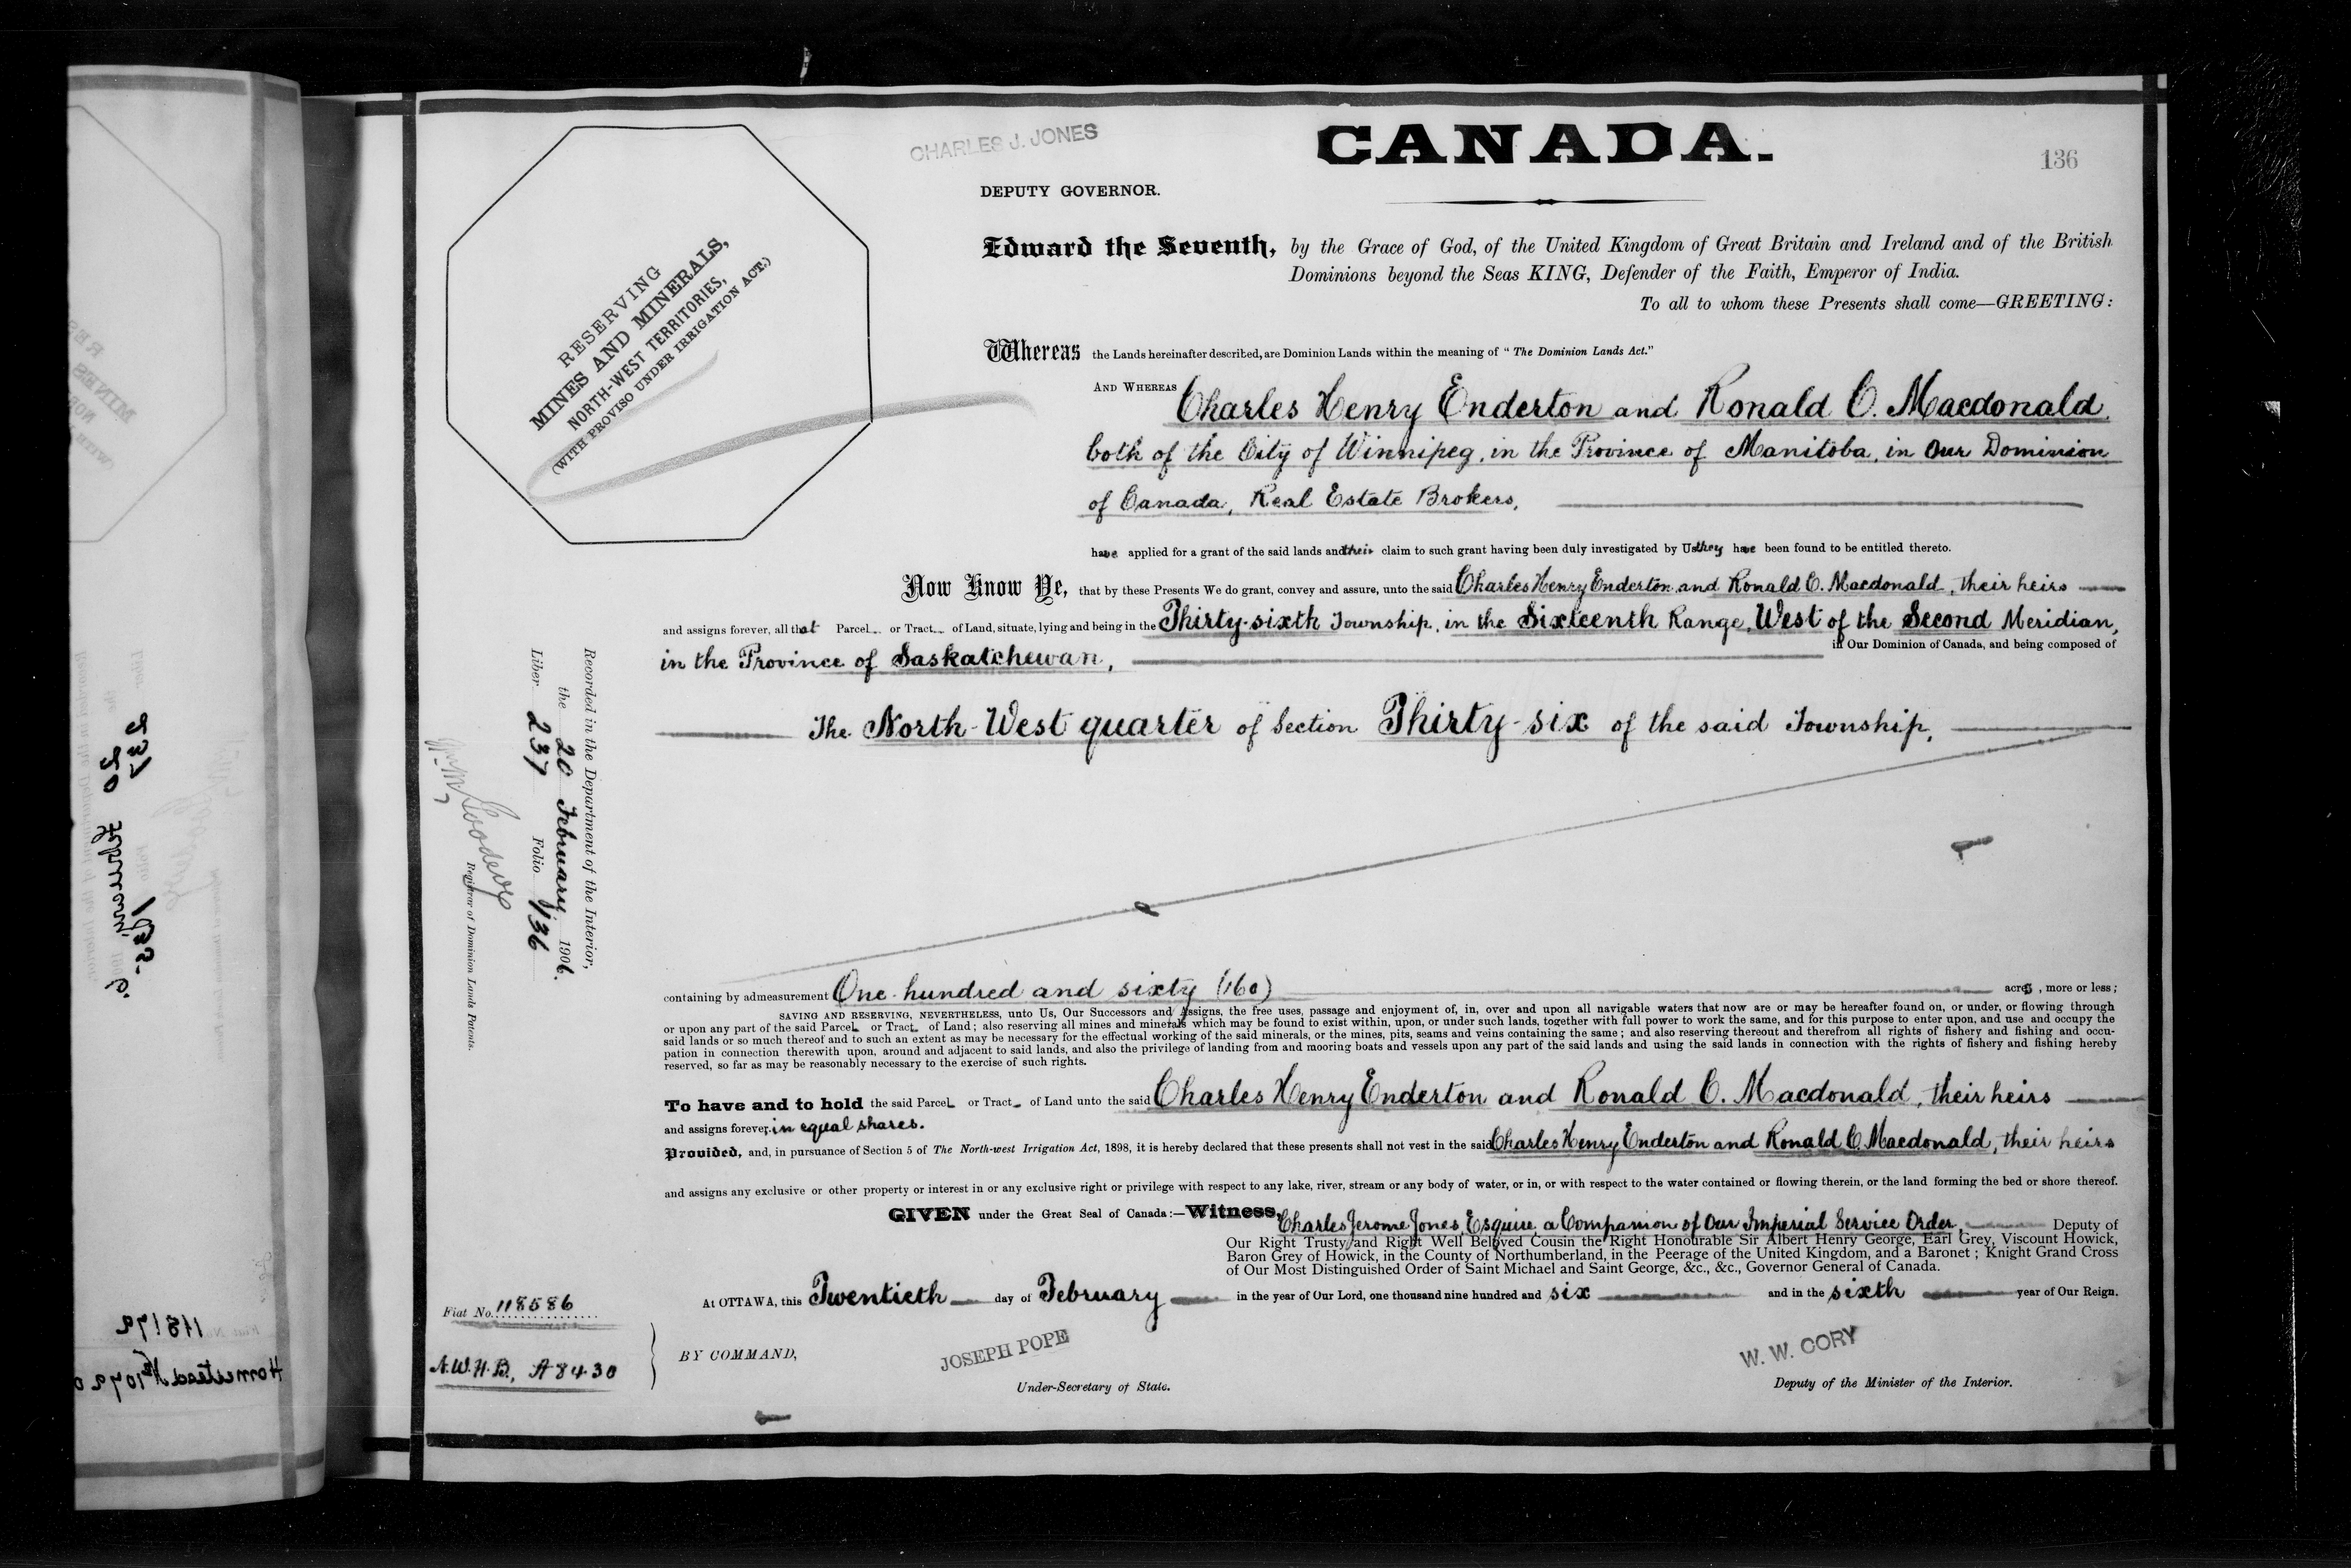 CHARLES J. JONES
CANADA.
136
DEPUTY GOVERNOR.
RESERVING
MINES AND MINERALS,
NORTH-WEST TERRITORIES,
(WITH PROVISO UNDER IRRIGATION ACT.)
Edward the Seventh, by the Grace of God, of the United Kingdom of Great Britain and Ireland and of the British
Dominions beyond the Seas KING, Defender of the Faith, Emperor of India.
To all to whom these Presents shall come—GREETING:
Whereas the Lands hereinafter described, are Dominion Lands within the meaning of "The Dominion Lands Act."
AND WHEREAS Charles Henry Enderton and Ronald C. Macdonald,
both of the City of Winnipeg, in the Province of Manitoba, in Our Dominion
of Canada, Real Estate Brokers,
have applied for a grant of the said lands and their claim to such grant having been duly investigated by Us they have been found to be entitled thereto.
Now Know Ye, that by these Presents We do grant, convey and assure, unto the said Charles Henry Enderton and Ronald C. Macdonald, their heirs
and assigns forever, all that Parcel or Tract of Land, situate, lying and being in the Thirty-sixth Township, in the Sixteenth Range, West of the Second Meridian,
in the Province of Saskatchewan, in Our Dominion of Canada, and being composed of
The North-West quarter of Section Thirty-six of the said Township,
Recorded in the Department of the Interior,
the 20 February 1906.
Liber 237 Folio 136
Registrar of Dominion Lands Patents.
containing by admeasurement One hundred and sixty (160) acres, more or less;
SAVING AND RESERVING, NEVERTHELESS, unto Us, Our Successors and Assigns, the free uses, passage and enjoyment of, in, over and upon all navigable waters that now are or may be hereafter found on, or under, or flowing through
or upon any part of the said Parcel or Tract of Land; also reserving all mines and minerals which may be found to exist within, upon, or under such lands, together with full power to work the same, and for this purpose to enter upon, and use and occupy the
said lands or so much thereof and to such an extent as may be necessary for the effectual working of the said minerals, or the mines, pits, seams and veins containing the same; and also reserving thereout and therefrom all rights of fishery and fishing and occu-
pation in connection therewith upon, around and adjacent to said lands, and also the privilege of landing from and mooring boats and vessels upon any part of the said lands and using the said lands in connection with the rights of fishery and fishing hereby
reserved, so far as may be reasonably necessary to the exercise of such rights.
To have and to hold the said Parcel or Tract of Land unto the said Charles Henry Enderton and Ronald C. Macdonald, their heirs
and assigns forever, in equal shares.
Provided, and, in pursuance of Section 5 of The North-west Irrigation Act, 1898, it is hereby declared that these presents shall not vest in the said Charles Henry Enderton and Ronald C. Macdonald, their heirs
and assigns any exclusive or other property or interest in or any exclusive right or privilege with respect to any lake, river, stream or any body of water, or in, or with respect to the water contained or flowing therein, or the land forming the bed or shore thereof.
GIVEN under the Great Seal of Canada:—Witness, Charles Jerome Jones, Esquire, a Companion of Our Imperial Service Order, Deputy of
Our Right Trusty and Right Well Beloved Cousin the Right Honourable Sir Albert Henry George, Earl Grey, Viscount Howick,
Baron Grey of Howick, in the County of Northumberland, in the Peerage of the United Kingdom, and a Baronet; Knight Grand Cross
of Our Most Distinguished Order of Saint Michael and Saint George, &c., &c., Governor General of Canada.
At OTTAWA, this Twentieth day of February in the year of Our Lord, one thousand nine hundred and six and in the sixth year of Our Reign.
Fiat No. 118586
N.W.H.B., A 8430
BY COMMAND,
JOSEPH POPE
Under-Secretary of State.
W. W. CORY
Deputy of the Minister of the Interior.